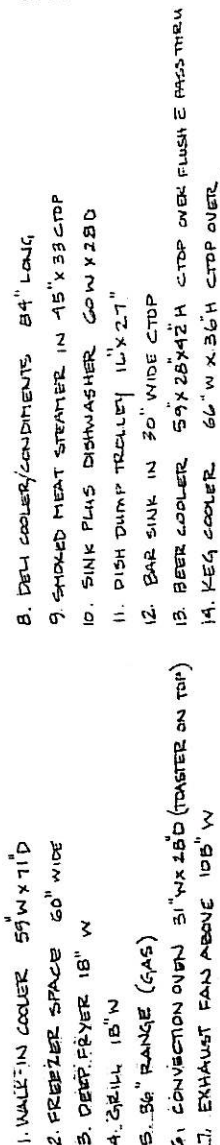 1. WALK-IN COOLER 59"W X 71"D
2. FREEZER SPACE 60" WIDE
3. DEEP FRYER 18" W
4. GRILL 18"W
5. 36" RANGE (GAS)
6. CONVECTION OVEN 31"W X 28"D (TOASTER ON TOP)
7. EXHAUST FAN ABOVE 108" W
8. DELI COOLER/CONDIMENTS 84" LONG
9. SMOKED MEAT STEAMER IN 45" X 33 CTOP
10. SINK PLUS DISHWASHER 60W X 28D
11. DISH DUMP TROLLEY 16" X 27"
12. BAR SINK IN 30" WIDE CTOP
13. BEER COOLER 59 X 28 X 42 H CTOP OVER FLUSH E PASS THRU
14. KEG COOLER 66" W X 36" H CTOP OVER